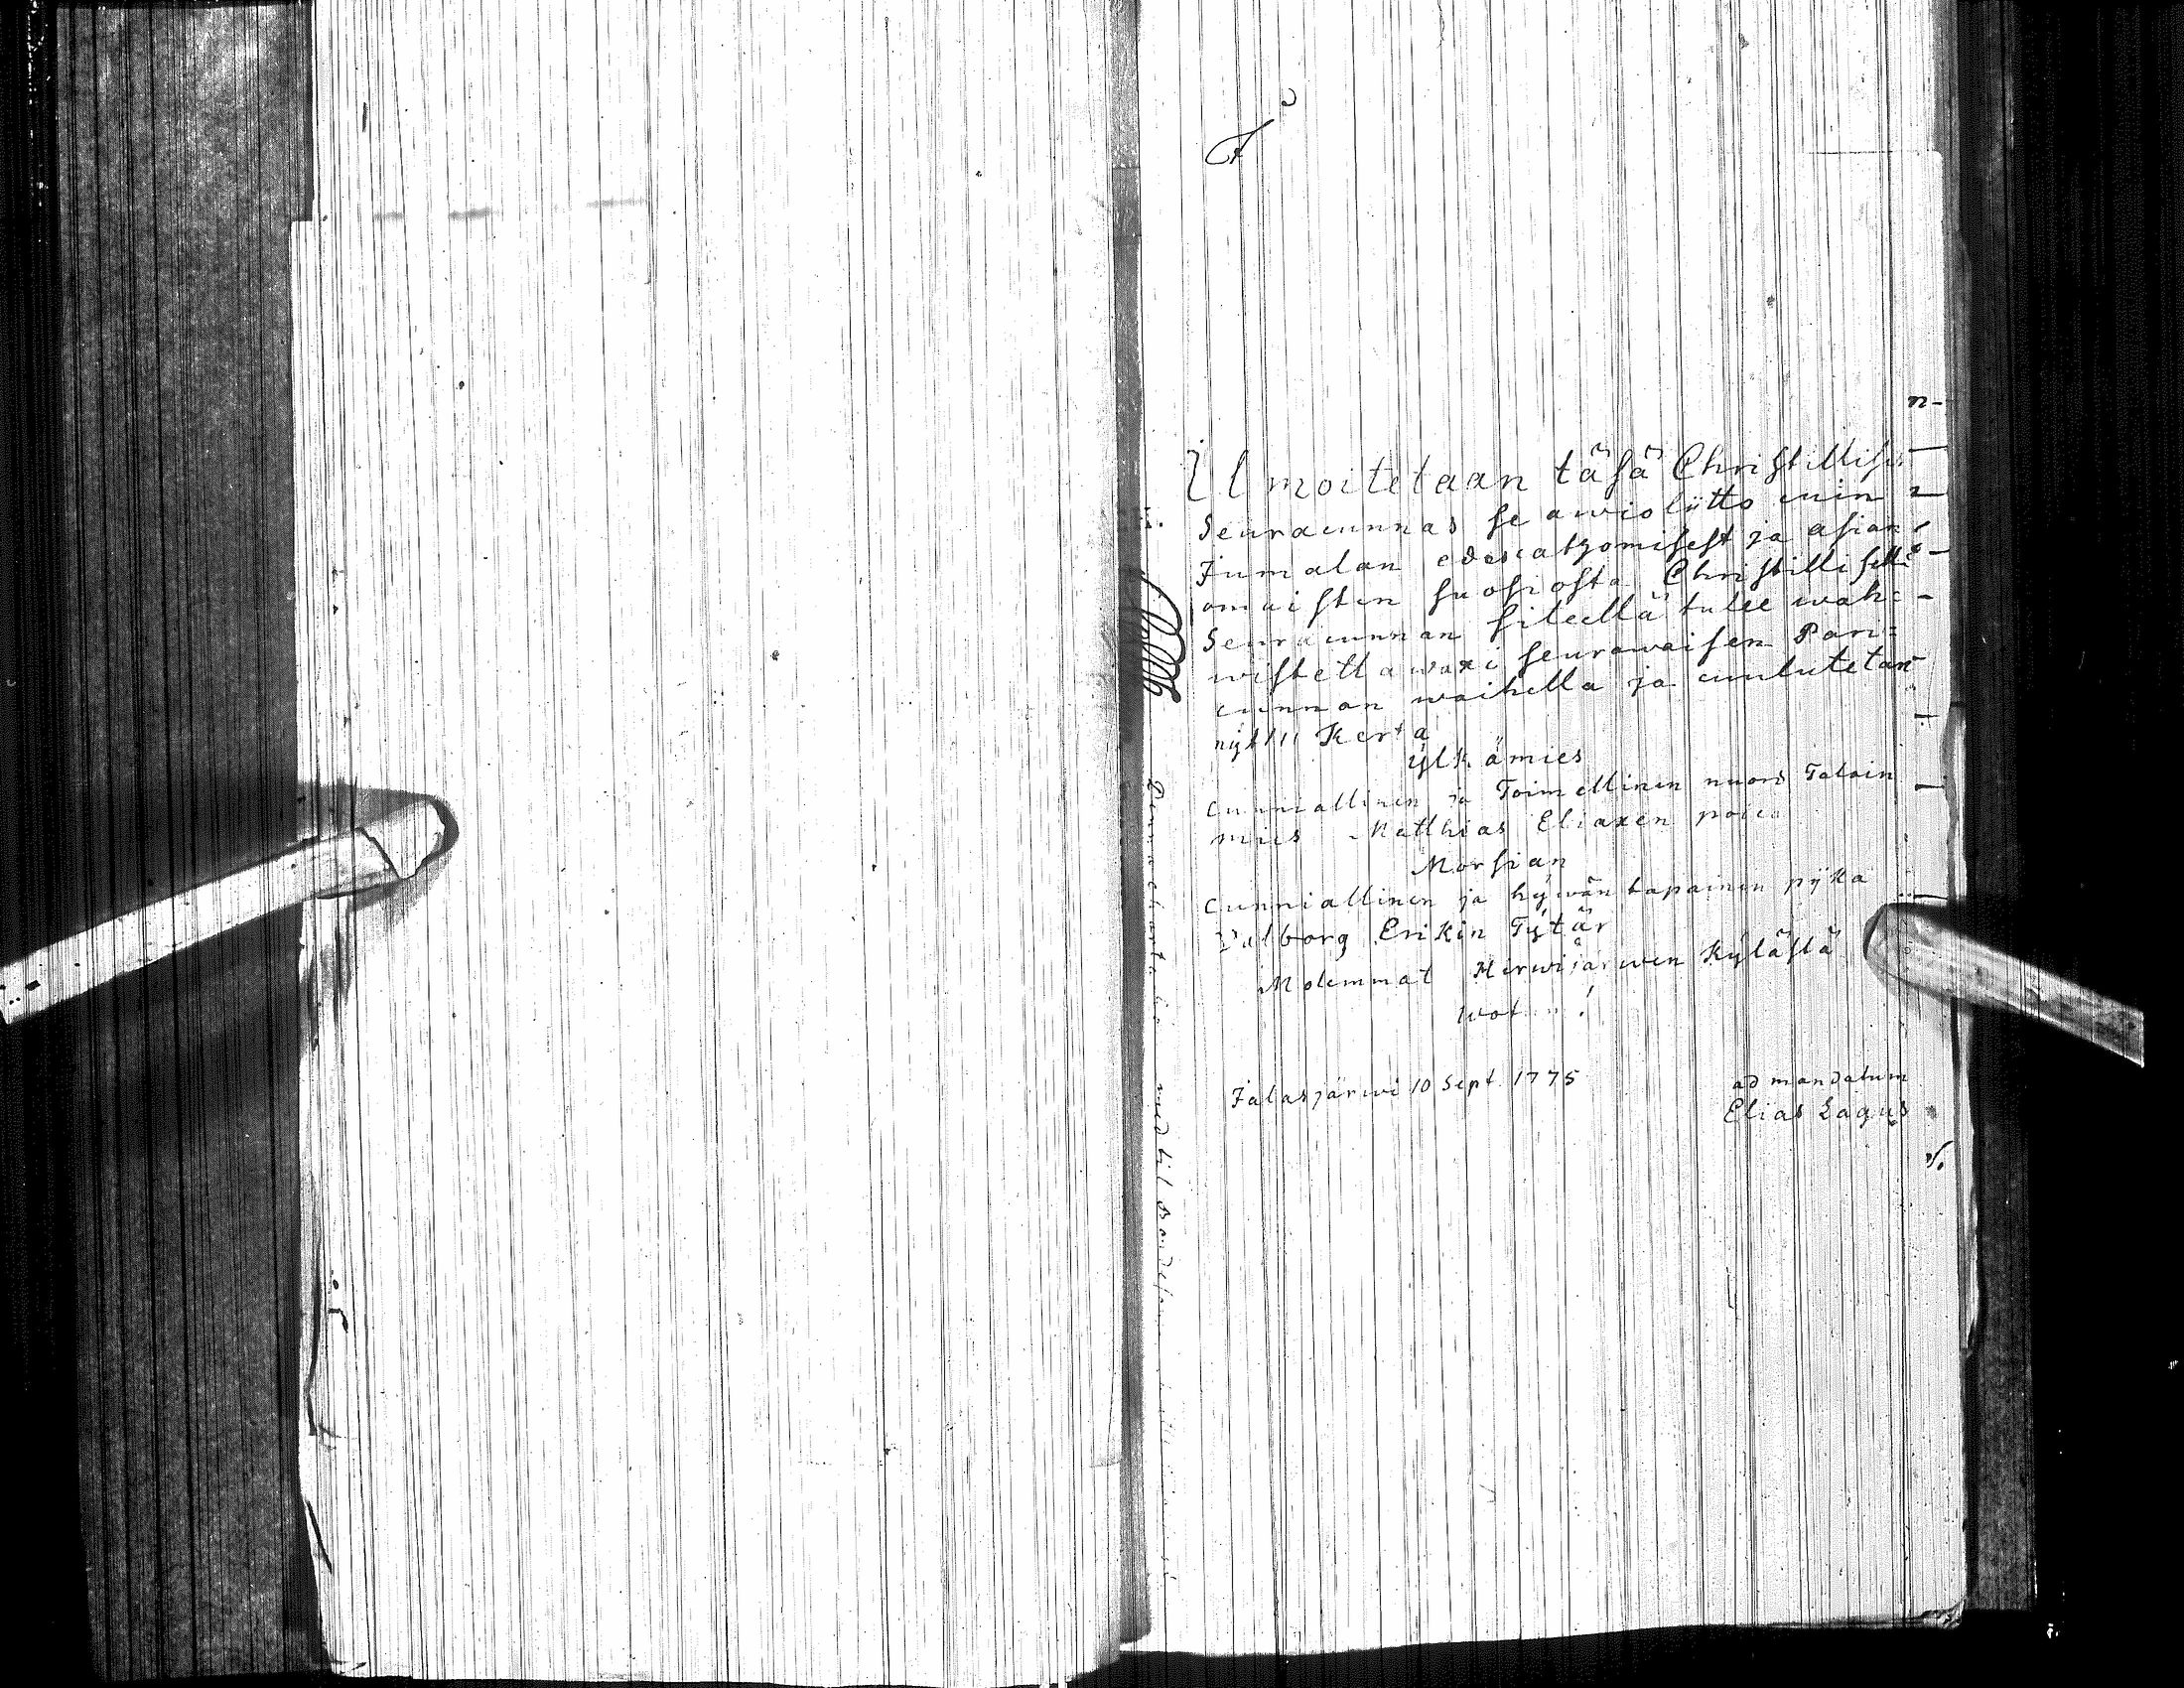 Ilmoitetaan täsä Christillises
Seuracunnas se awioliitto cuin
Jumalan edescatzomisest ja asian
omaisten suosiosta Christillisellä
Seuracunnan siteellä tulee wah-
wistettawaxi seurawaisen Paris-
cunnan waihella ja cuulutetan
nyt III Kerta
ylkämies
cunniallinen ja Toimellinen nuori Taloin
mies Matthias Eliaxen poica
Morsian
cunniallinen ja hywän tapainen pijka
Valborg Erikin Tytär
Molemmat Hirwijärwen Kylästä
wot
Jalasjärwi 10 Sept. 1775
ad mandatum
Elias Lagus